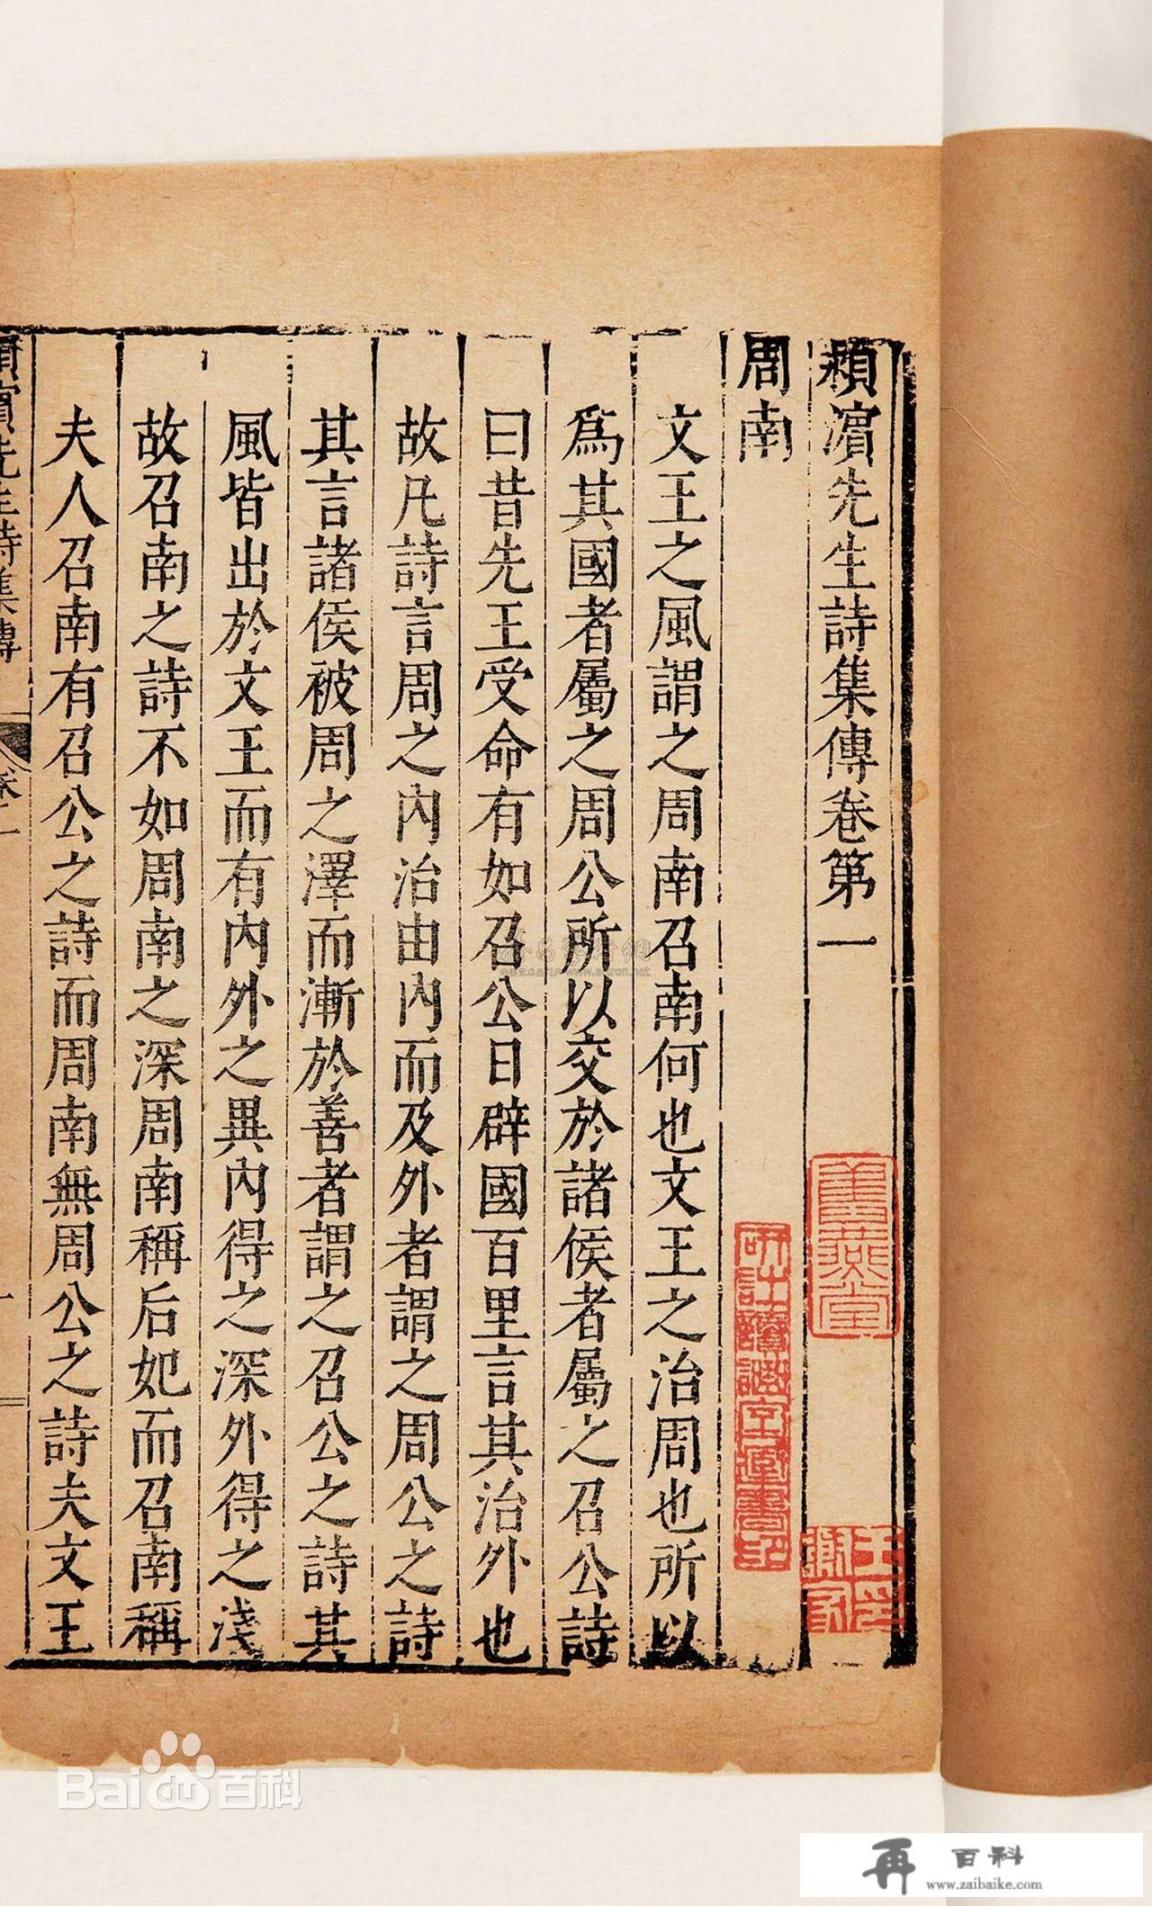 潁濵先生詩集傳卷第一
周南
文王之風謂之周南召南何也文王之治周也所以
爲其國者屬之周公所以交於諸侯者屬之召公詩
曰昔先王受命有如召公日辟國百里言其治外也
故凡詩言周之內治由內而及外者謂之周公之詩
其言諸侯被周之澤而漸於善者謂之召公之詩其
風皆出於文王而有內外之異內得之深外得之淺
故召南之詩不如周南之深周南稱后妃而召南稱
夫人召南有召公之詩而周南無周公之詩夫文王
濵先生詩集傳
卷一
一
Bai 百科
再 百科
www.zaibaike.com